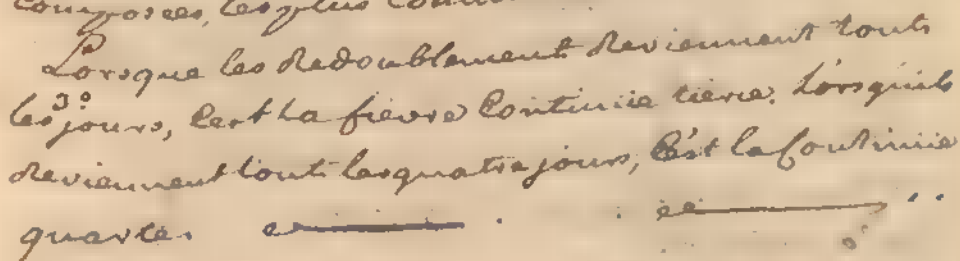 composées, les plus
Lorsque les Redoublement Reviennent touts
les 3e jours, C'est La fievre Continüe tierce. Lorsquils
Reviennent touts les quatre jours, C'est la Continüe
quarte.